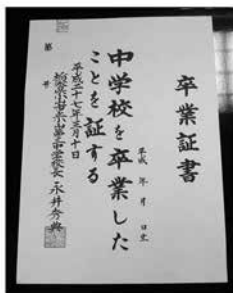 卒業証書
平成 年 月 日生
中学校を卒業した
ことを証する
平成二十七年三月十日
中学校長 永井秀典
第 号